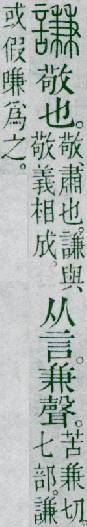 謙 敬也。敬肅也。謙與敬義相成。从言。兼聲。苦兼切。七部。謙
或假嗛爲之。